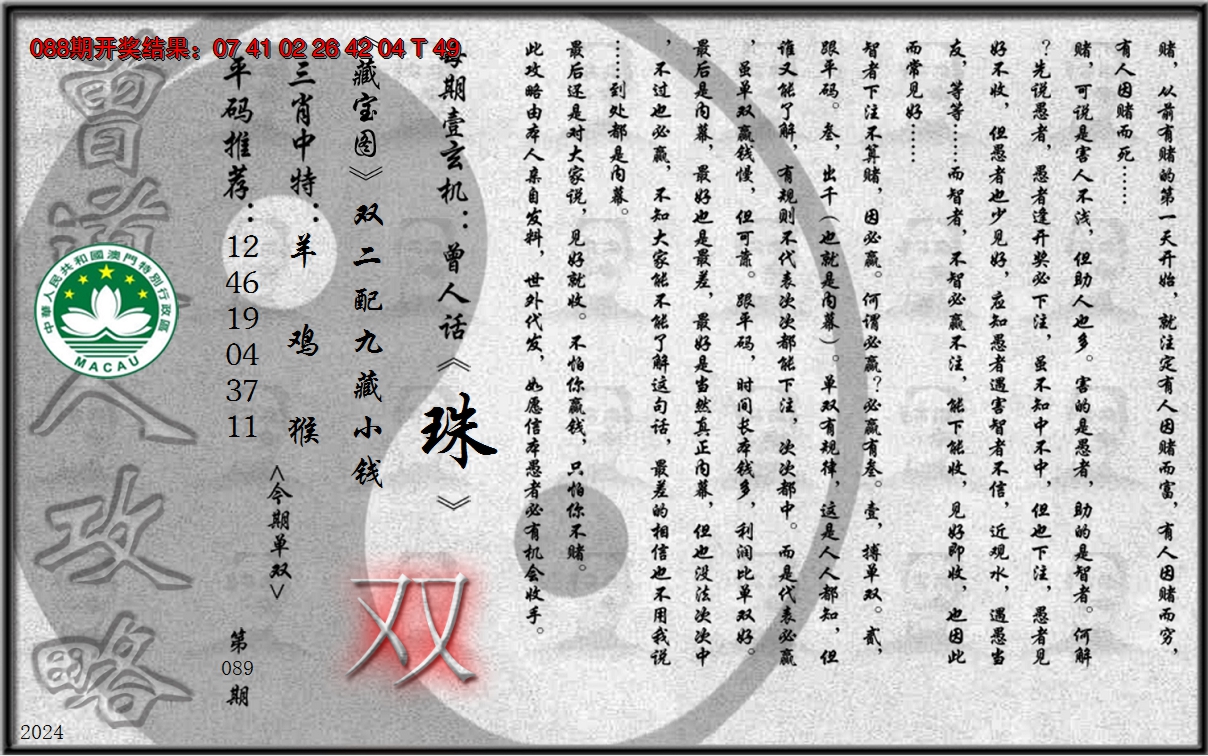 088期开奖结果：07 41 02 26 42 04 T 49
赌，从前有赌的第一天开始，就注定有人因赌而富，有人因赌而穷，
有人因赌而死……
赌，可说是害人不浅，但助人也多。害的是愚者，助的是智者。何解
？先说愚者，愚者逢开奖必下注，虽不知中不中，但也下注，愚者见
好不收，但愚者也少见好，应知愚者遇害智者不信，近观水，遇愚当
友，等等……而智者，不智必赢不注，能下能收，见好即收，也因此
而常见好……
智者下注不算赌，因必赢。何谓必赢？必赢有叁。壹，搏单双。贰，
跟平码。叁，出千（也就是内幕）。单双有规律，这是人人都知，但
谁又能了解，有规则不代表次次都能下注，次次都中。而是代表必赢
，虽单双赢钱慢，但可靠。跟平码，时间长本钱多，利润比单双好。
最后是内幕，最好也是最差，最好是当然真正内幕，但也没法次次中
，不过也必赢，不知大家能不能了解这句话，最差的相信也不用我说
……到处都是内幕。
最后还是对大家说，见好就收。不怕你赢钱，只怕你不赌。
此攻略由本人亲自发料，世外代发，如愿信本愚者必有机会收手。
每期壹玄机：曾人话《珠》
《藏宝图》双二配九藏小钱
双
三肖中特：羊 鸡 猴
<今期单双>
平码推荐：
12
46
19
04
37
11
第
089
期
曾道人攻略
中華人民共和國澳門特別行政區
MACAU
2024